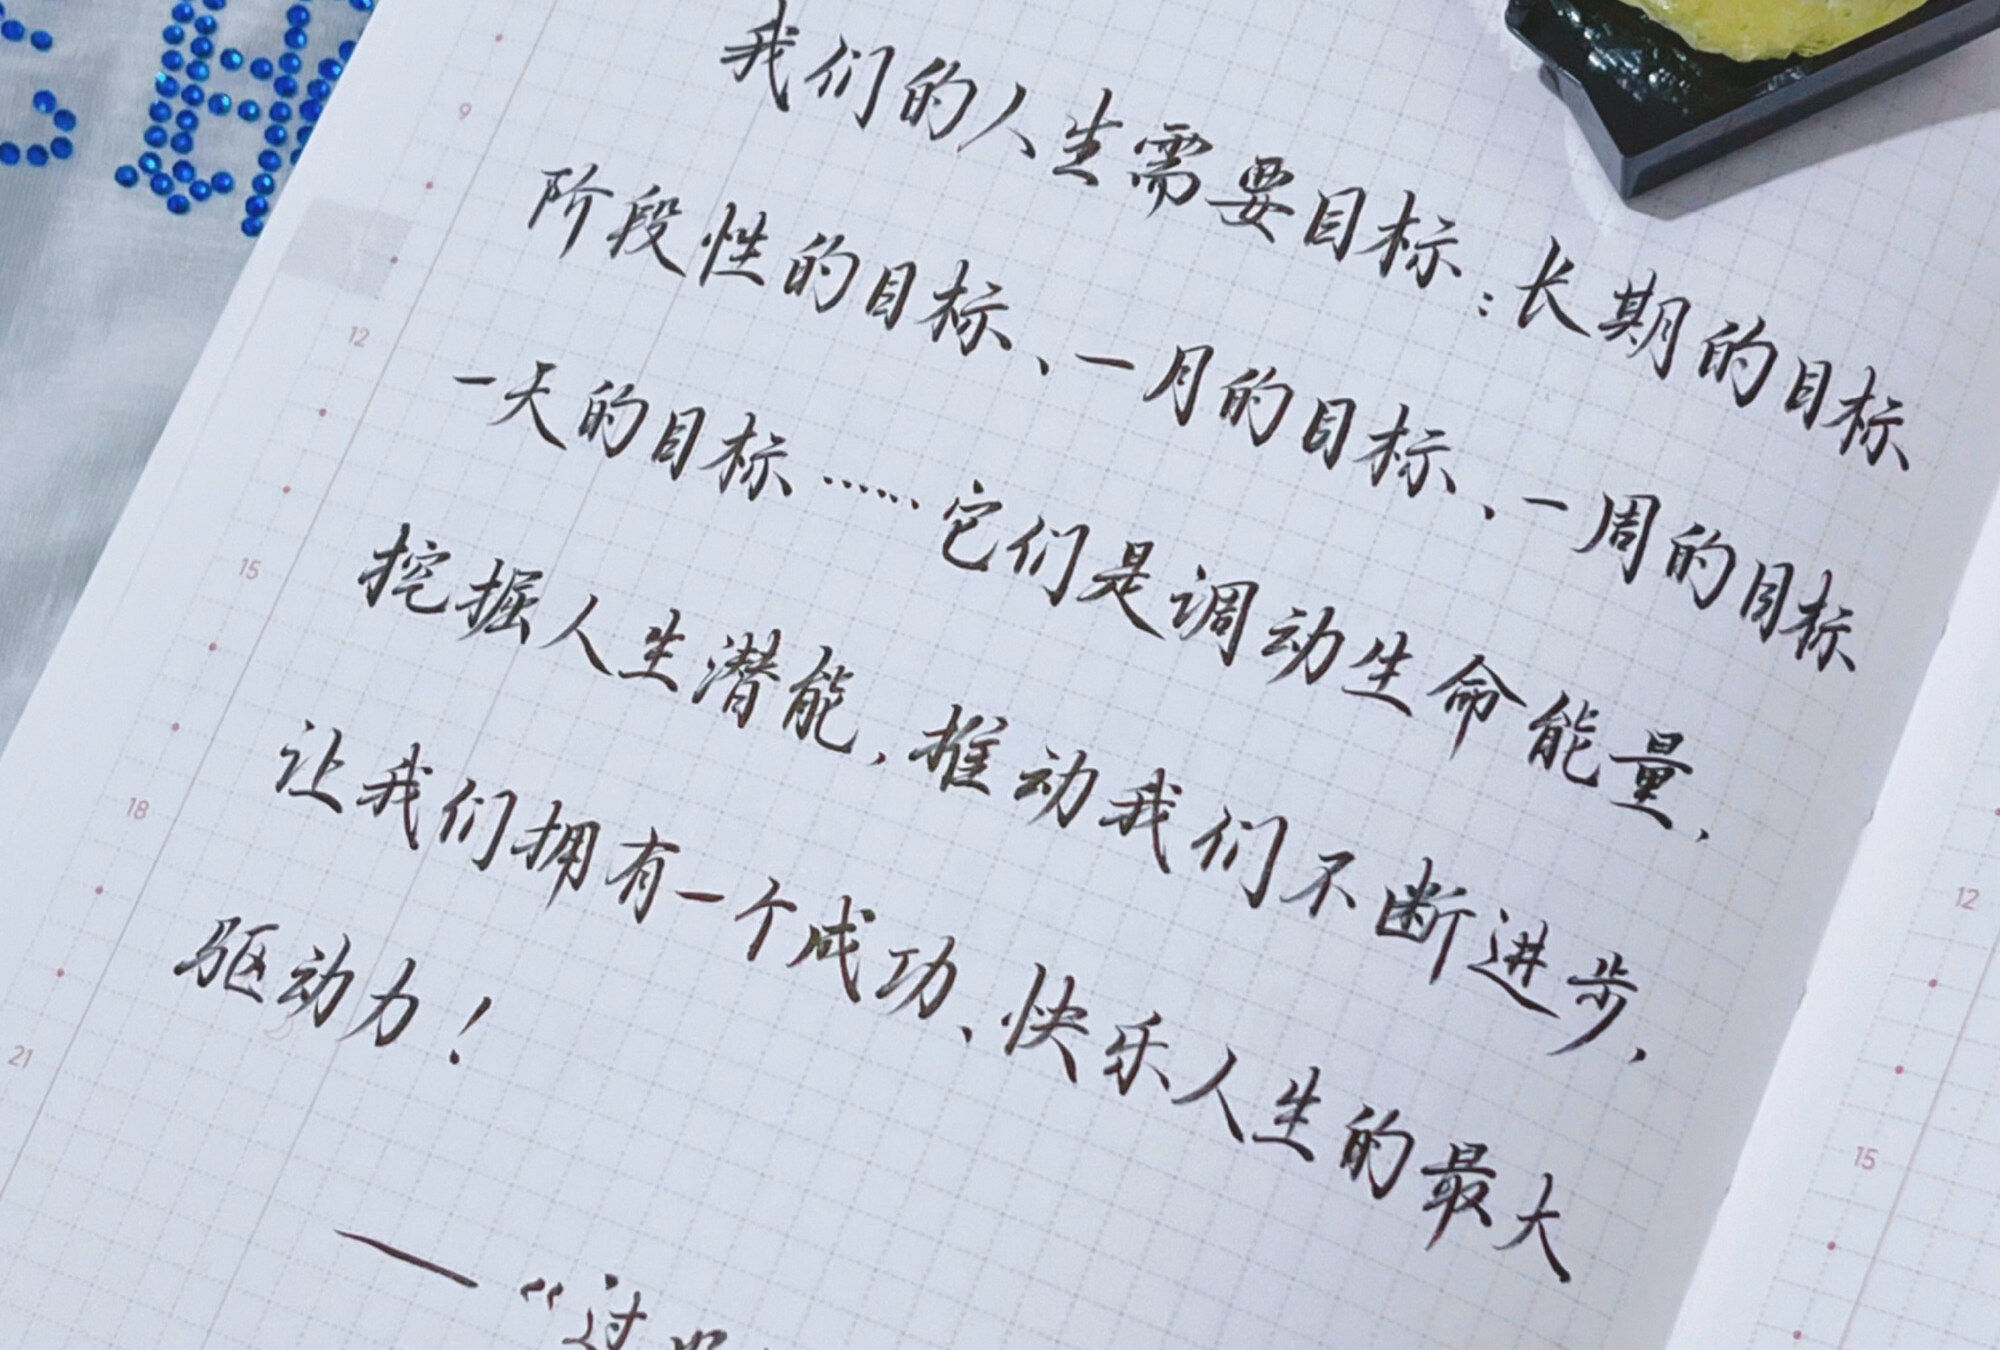 我们的人生需要目标：长期的目标
阶段性的目标、一月的目标、一周的目标
一天的目标……它们是调动生命能量，
挖掘人生潜能，推动我们不断进步，
让我们拥有一个成功、快乐人生的最大
驱动力！
——“过
9
12
15
18
21
12
15